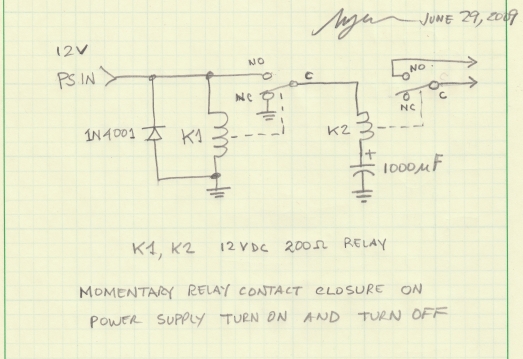 JUNE 29, 2009
12V
PS IN
NO
C
NC
NO
C
NC
1N4001
K1
K2
+
1000µF
K1, K2 12VDC 200Ω RELAY
MOMENTARY RELAY CONTACT CLOSURE ON
POWER SUPPLY TURN ON AND TURN OFF